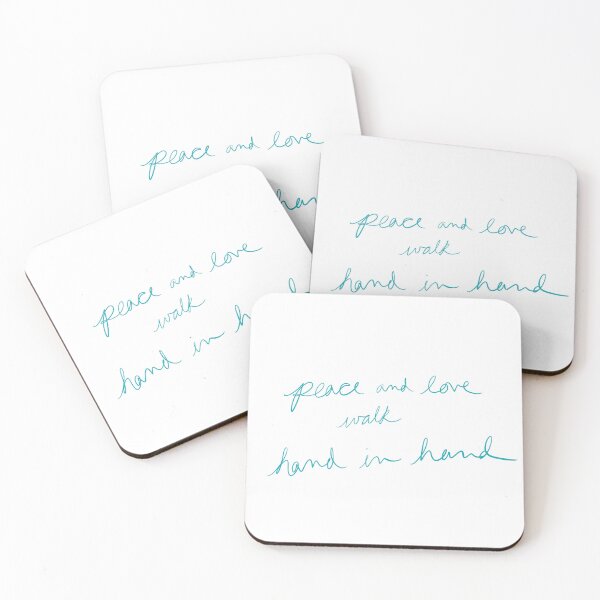 peace and love
han
peace and love
walk
hand in hand
peace and love
walk
hand in h
peace and love
walk
hand in hand